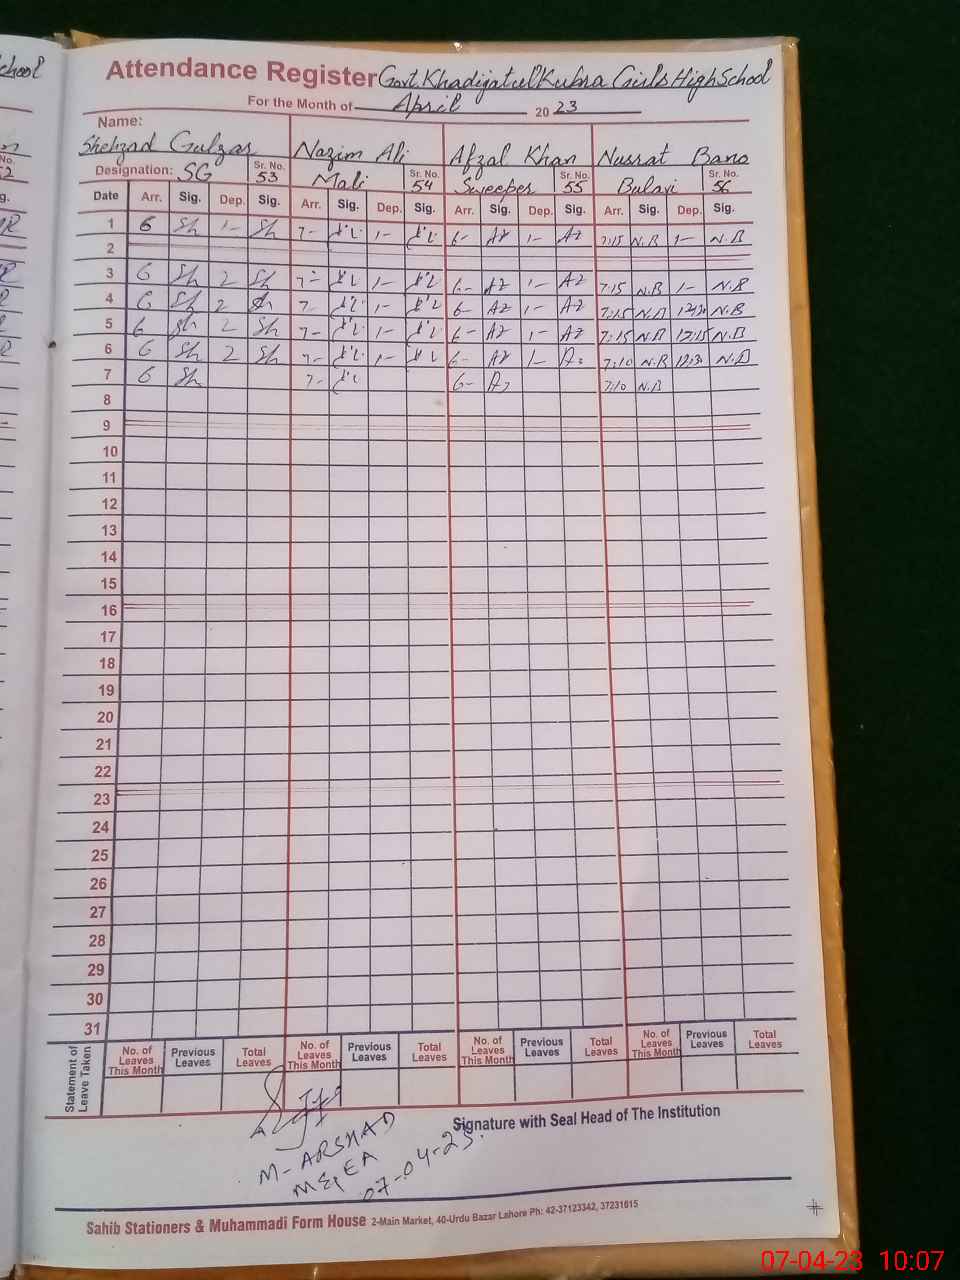 chool
Attendance Register Govt. Khadijatul Kubra Girls High School
For the Month of April 2023
Name:
Shehzad Gulzar Nazim Ali Afzal Khan Nusrat Bano
Designation: SG Sr. No. 53 Mali Sr. No. 54 Sweeper Sr. No. 55 Bulavi Sr. No. 56
Date Arr. Sig. Dep. Sig. Arr. Sig. Dep. Sig. Arr. Sig. Dep. Sig. Arr. Sig. Dep. Sig.
1 6 Sh 1- Sh 7- 1- 6- Az 1- Az 7:15 N.B 1- N.B
2
3 6 Sh 2 Sh 7- 1- 6- Az 1- Az 7:15 N.B 1- N.B
4 6 Sh 2 Sh 7- 1- 6- Az 1- Az 7:15 N.B N.B
5 6 Sh 2 Sh 7- 1- 6- Az 1- Az 7:15 N.B 12:15 N.B
6 6 Sh 2 Sh 7- 1- 6- Az 1- 7:10 N.B 12:30 N.B
7 6 Sh 7- 6- 7:10 N.B
8
9
10
11
12
13
14
15
16
17
18
19
20
21
22
23
24
25
26
27
28
29
30
31
Statement of Leave Taken
No. of Leaves This Month Previous Leaves Total Leaves No. of Leaves This Month Previous Leaves Total Leaves No. of Leaves This Month Previous Leaves Total Leaves No. of Leaves This Month Previous Leaves Total Leaves
Signature with Seal Head of The Institution
M-ARSHAD
MEA
07-04-23.
Sahib Stationers & Muhammadi Form House 2-Main Market, 40-Urdu Bazar Lahore Ph: 42-37123342, 37231615
07-04-23 10:07